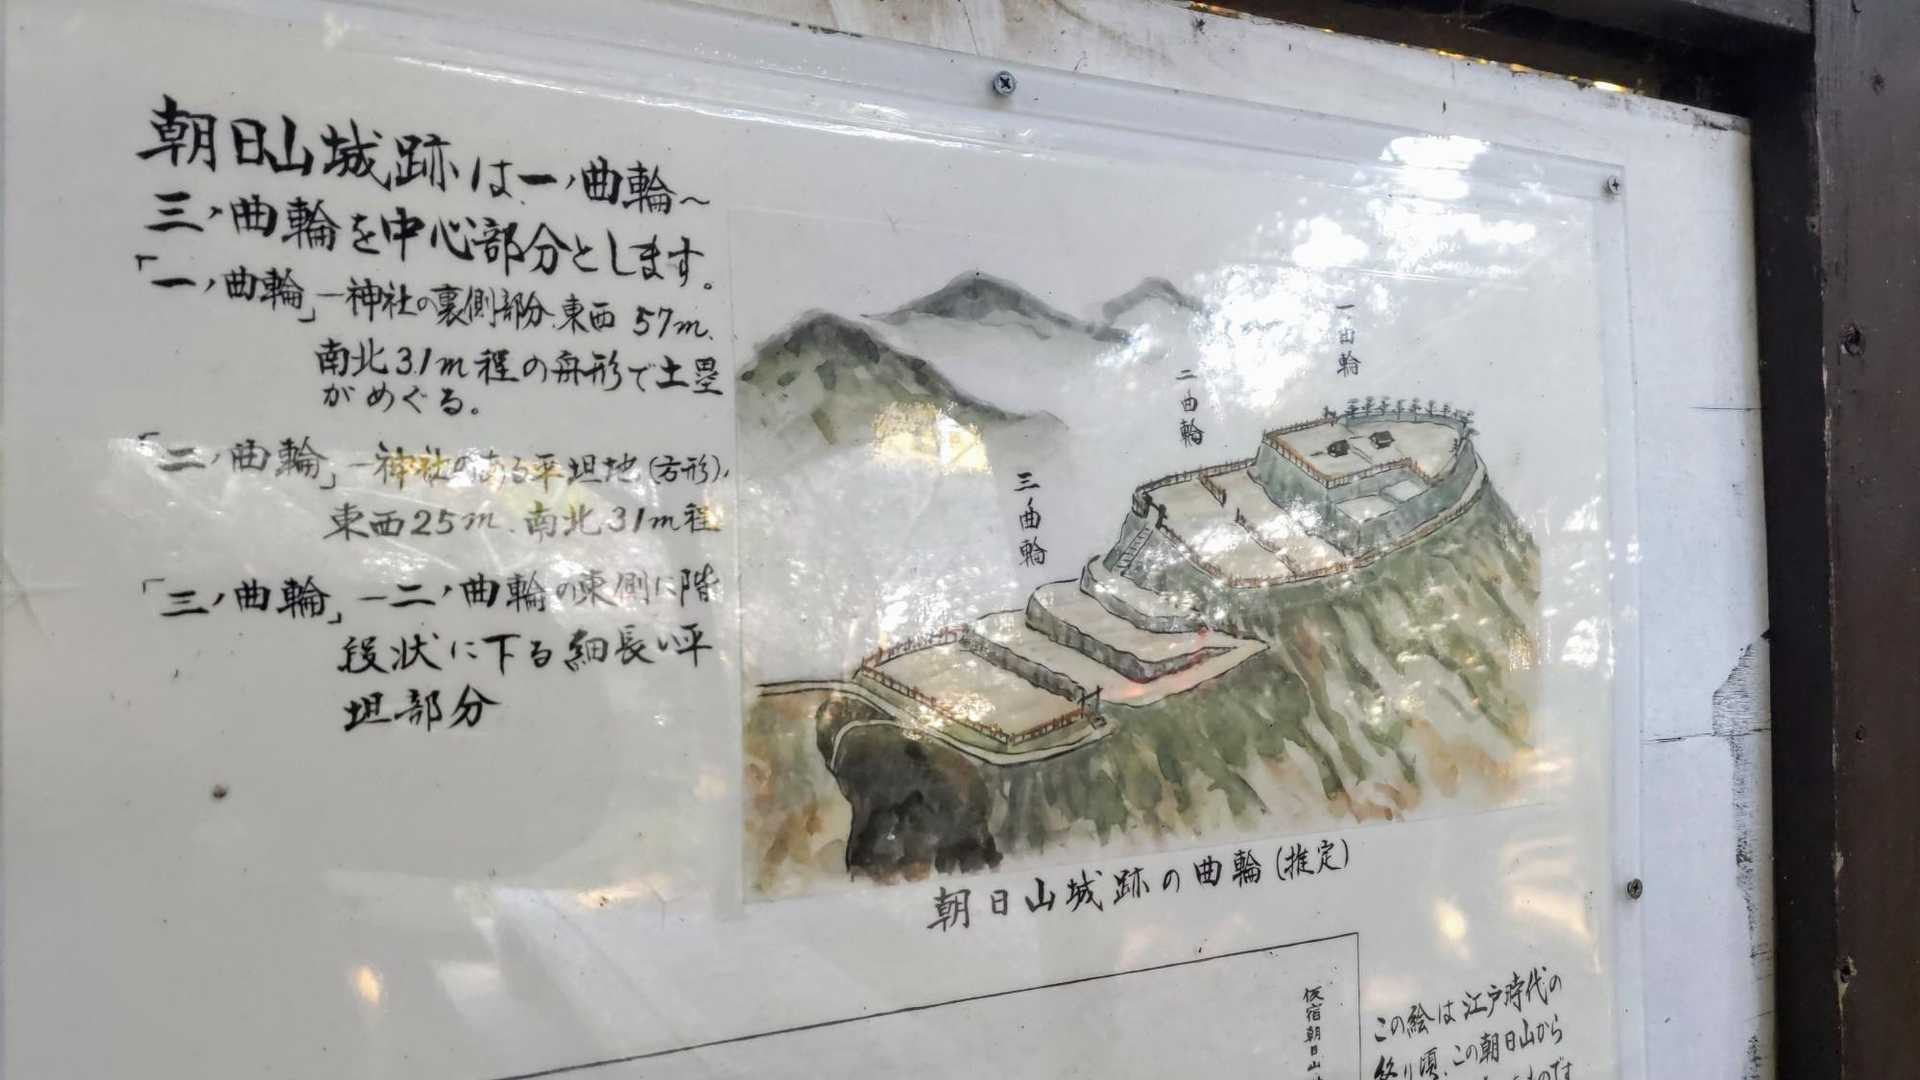 朝日山城跡は一ノ曲輪～
三ノ曲輪を中心部分とします。
「一ノ曲輪」―神社の裏側部分、東西 57m、
南北31m程の舟形で土塁
がめぐる。
「二ノ曲輪」―神社のある平坦地(方形)、
東西25m、南北31m程
「三ノ曲輪」―二ノ曲輪の東側に階
段状に下る細長い平
坦部分
一曲輪
二曲輪
三ノ曲輪
朝日山城跡の曲輪(推定)
仮宿朝日山
この絵は江戸時代の
終り頃、この朝日山から
ものです